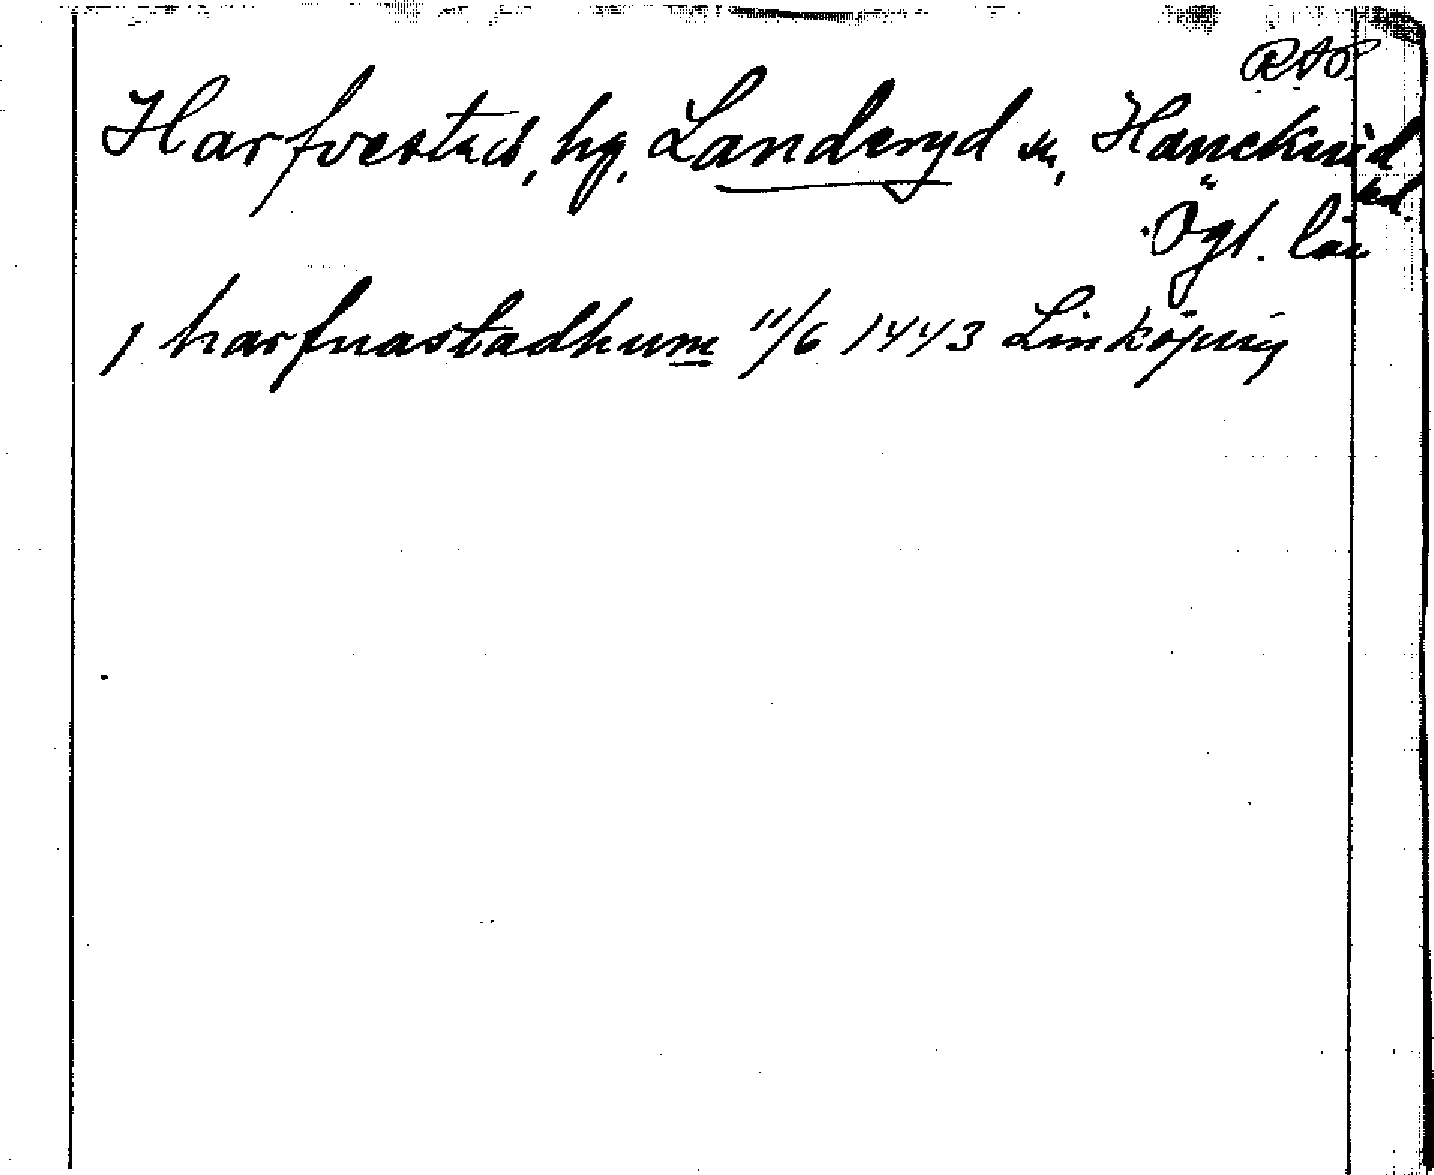 RAP.
Harfvestad, hg, Landeryd sn, Hanekind
hd.
Ögl. län
j harfnastadhum 11/6 1443 Linköping